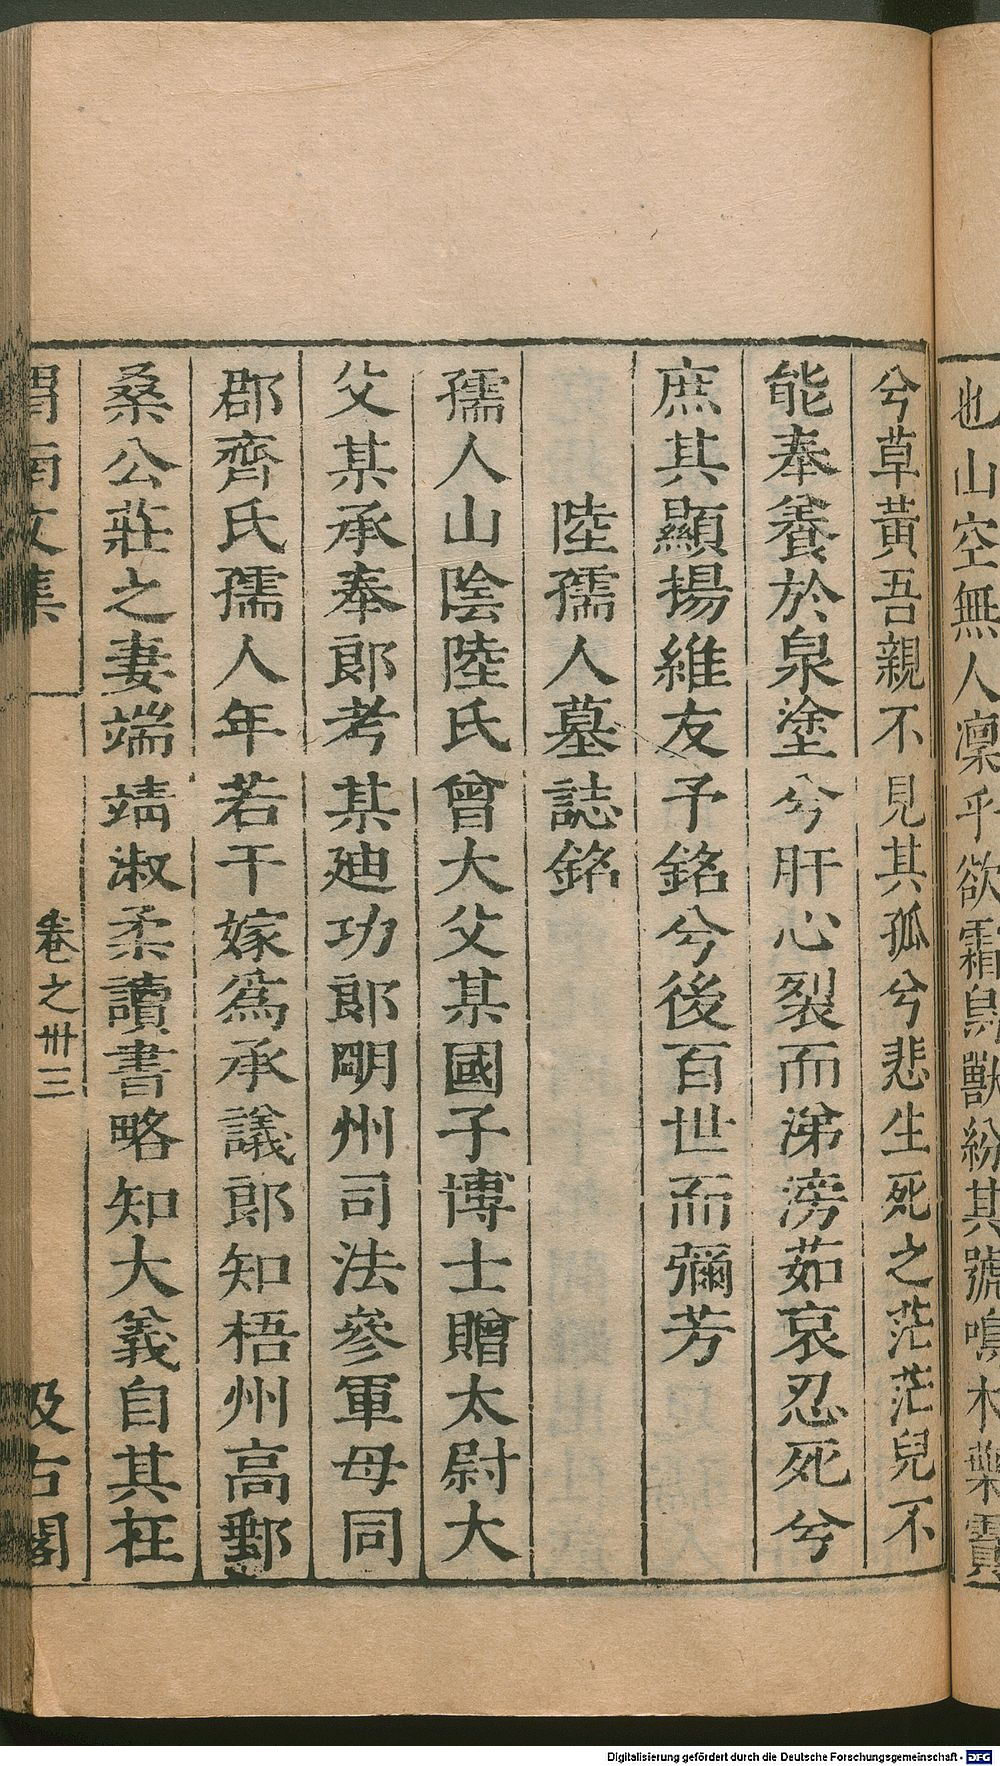 也山空無人凜乎欲霜鳥獸紛其號鳴木葉霣
兮草黃吾親不見其孤兮悲生死之茫茫兒不
能奉養於泉塗兮肝心裂而涕滂茹哀忍死兮
庶其顯揚維友予銘兮後百世而彌芳
陸孺人墓誌銘
孺人山陰陸氏曾大父某國子博士贈太尉大
父某承奉郎考某廸功郎明州司法參軍母同
郡齊氏孺人年若干嫁爲承議郎知梧州高郵
桑公莊之妻端靖淑柔讀書略知大義自其在
渭南文集 卷之卌三 汲古閣
Digitalisierung gefördert durch die Deutsche Forschungsgemeinschaft - DFG